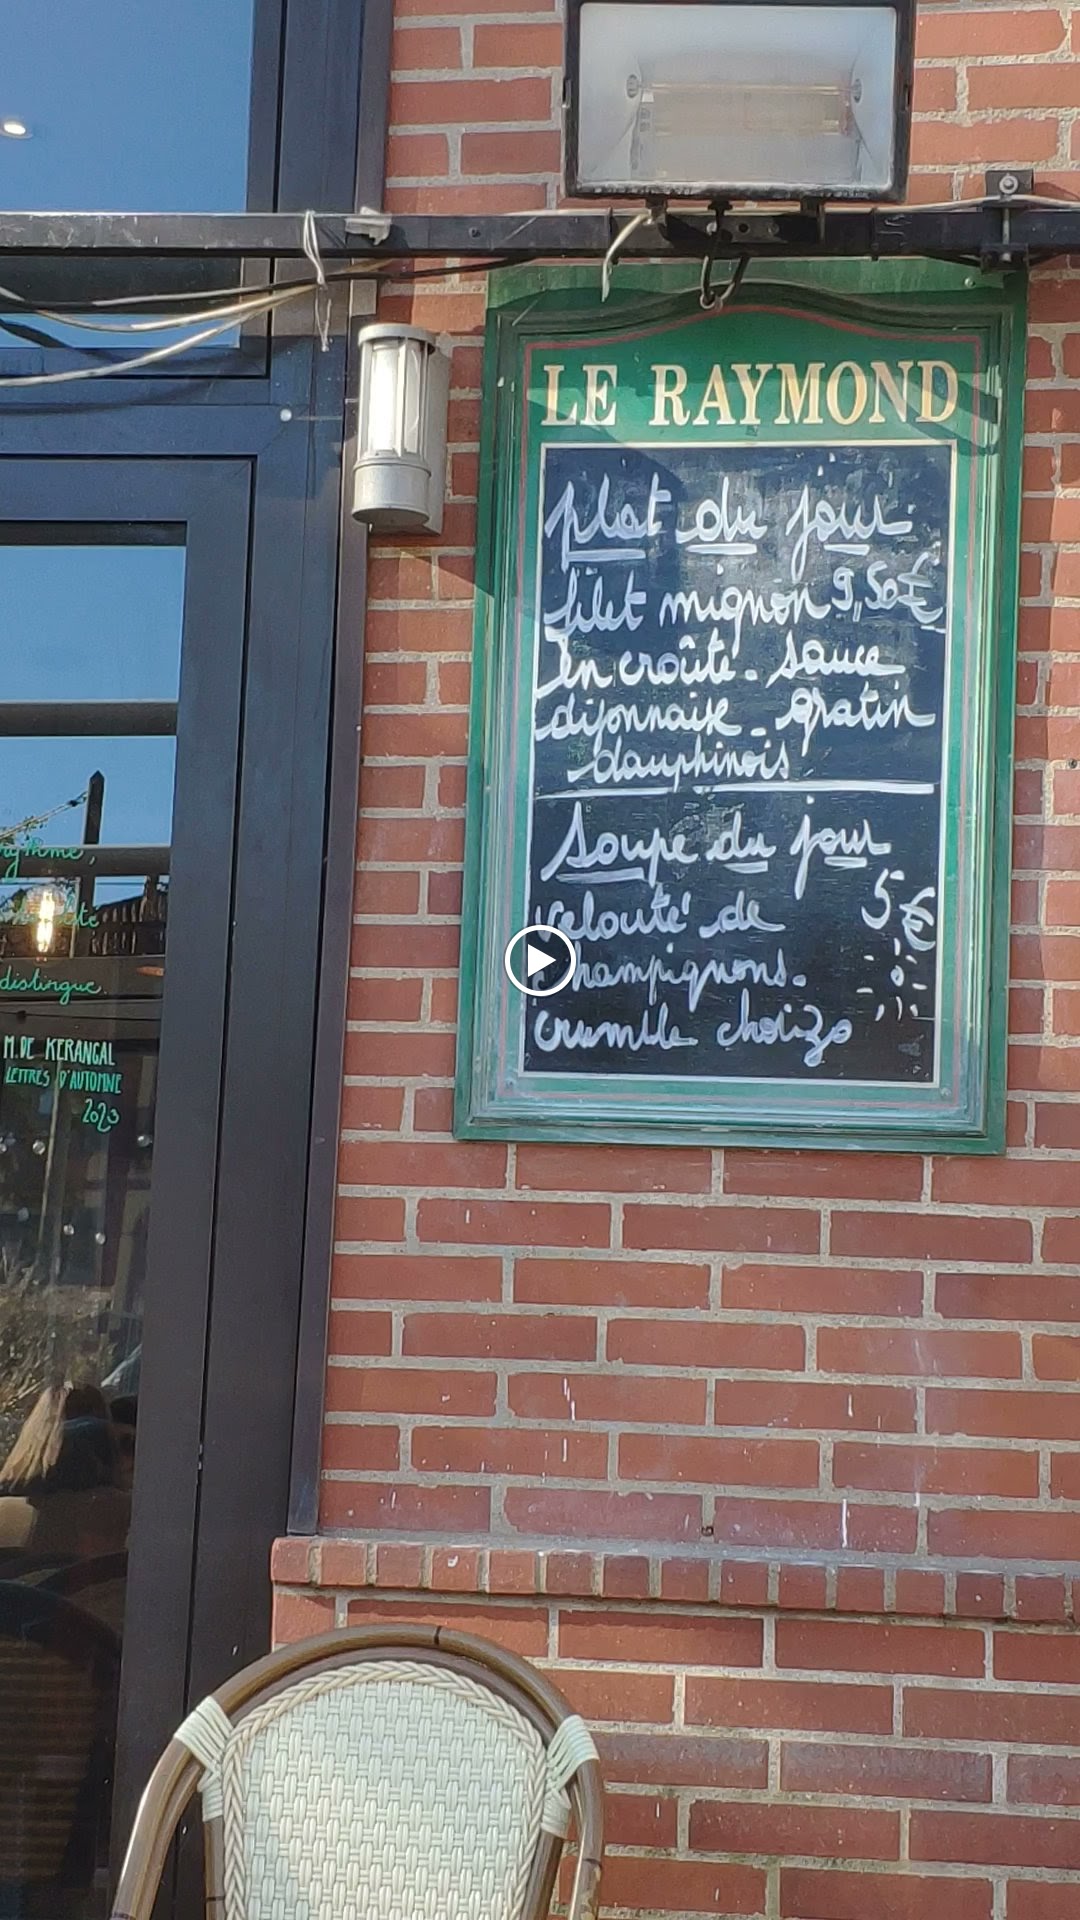 LE RAYMOND
plat du jour
filet mignon 9,50€
en croûte. sauce
dijonnaise. gratin
dauphinois
Soupe du jour
velouté de 5€
champignons.
crumble chorizo
distingue.
M. DE KERANGAL
LETTRES D'AUTOMNE
2023